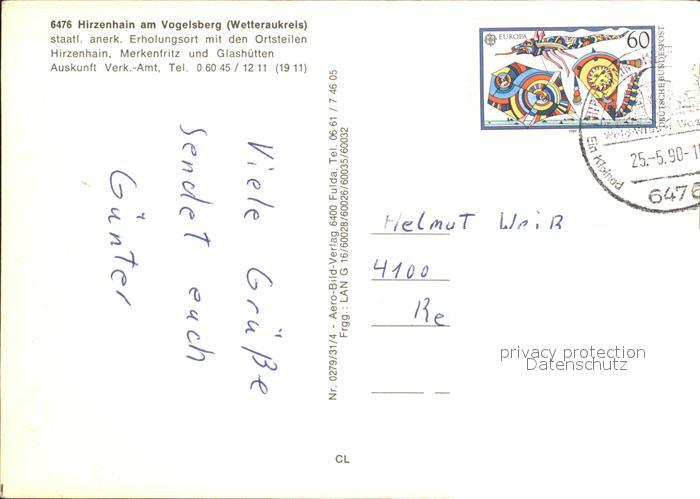 6476 Hirzenhain am Vogelsberg (Wetteraukreis)
staatl. anerk. Erholungsort mit den Ortsteilen
Hirzenhain, Merkenfritz und Glashütten
Auskunft Verk.-Amt, Tel. 0 60 45 / 12 11 (19 11)
Viele Grüße
sendet euch
Günter
Nr. 0279/31/4 - Aero-Bild-Verlag 6400 Fulda, Tel. 06 61 / 7 46 05
Frgg.: LAN G 16/60028/60026/60035/60032
EUROPA
60
DEUTSCHE BUNDESPOST
Ein Kleinod
25.-5.90-1
6476
Helmut Weiß
4100
Re
privacy protection
Datenschutz
CL